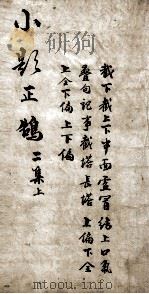 截下截上下半面虛冒結上口氣
疊句記事截搭長搭上偏下全
上全下偏上下偏
小題正鵠二集上